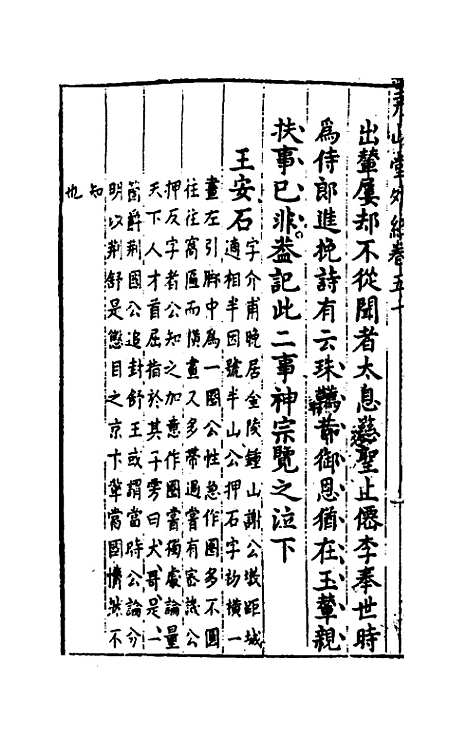 堯山堂外紀卷五十
出輦屢却不從聞者太息慈聖上僊李奉世時
為侍郎進挽詩有云珠韉昔御恩猶在玉輦親
扶事已非蓋記此二事神宗覽之泣下
王安石
字介甫晚居金陵鍾山謝公墩距城
適相半因號半山公押石字初橫一
畫左引脚中為一圈公性急作圈多不圓
往往窩匾而橫畫又多帶過嘗有密議公
押反字者公知之加意作圈嘗獨處論量
天下人才首屈指於其子雱曰大哥是一
箇辭荆國公追封舒王或謂當時公論分
明以荆舒是懲目之京卞輩當國懵然不
知
也